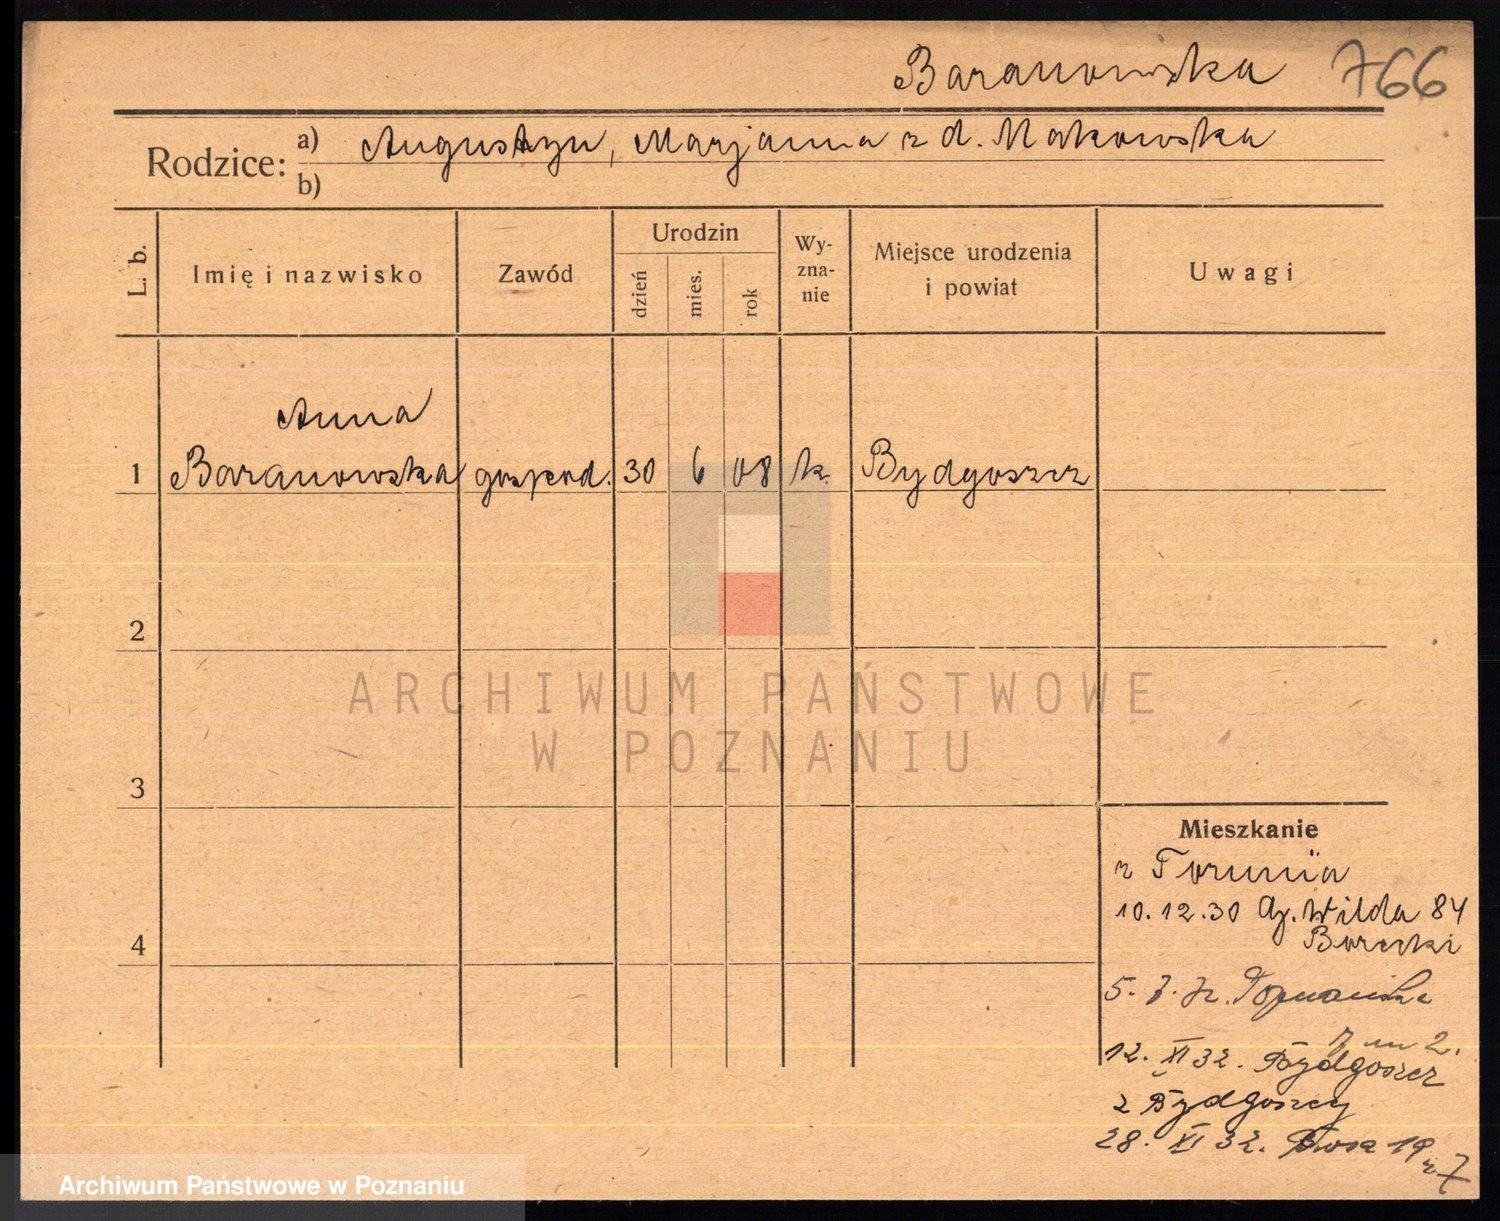 Baranowska 766
Rodzice: a) Augustyn, Marjanna z d. Makowska
b)
L. b.
Imię i nazwisko
Zawód
Urodzin
dzień
mies.
rok
Wy-
zna-
nie
Miejsce urodzenia
i powiat
Uwagi
Anna
1 Baranowska gospod. 30 6 08 k. Bydgoszcz
2
ARCHIWUM PAŃSTWOWE
W POZNANIU
3
Mieszkanie
z Torunia
10.12.30 G. Wilda 84
4
5. 7. 32. Poznańska
7 m 2.
12. XI 32. Bydgoszcz
z Bydgoszcy
28. XI 32. 19
7
Archiwum Państwowe w Poznaniu